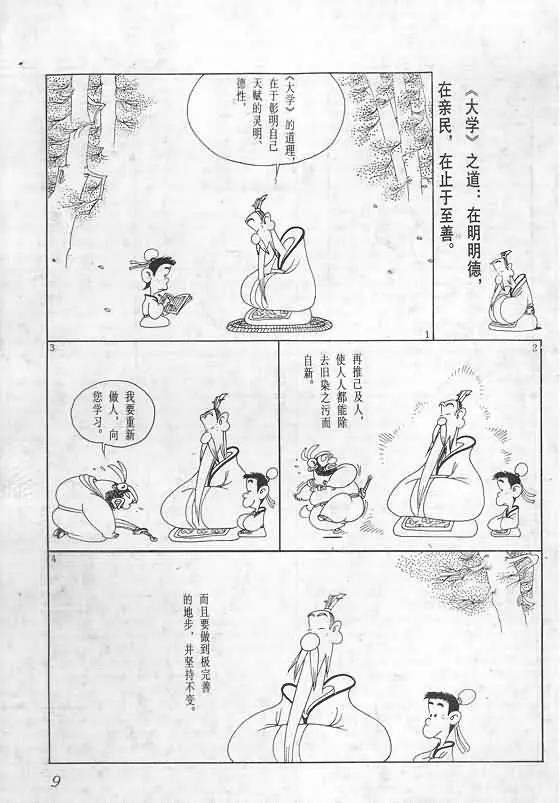 《大学》之道：在明明德，
在亲民，在止于至善。
《大学》的道理，
在于彰明自己
天赋的灵明、
德性，
1
2
再推己及人，
使人人都能除
去旧染之污而
自新。
3
我要重新
做人，向
您学习。
4
而且要做到极完善
的地步，并坚持不变。
9